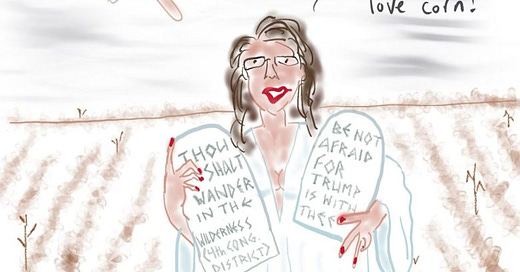 love corn!
THOU
SHALT
WANDER
IN THE
WILDERNESS
(4th CONG.
DISTRICT)
BE NOT
AFRAID
FOR
TRUMP
IS WITH
THEE